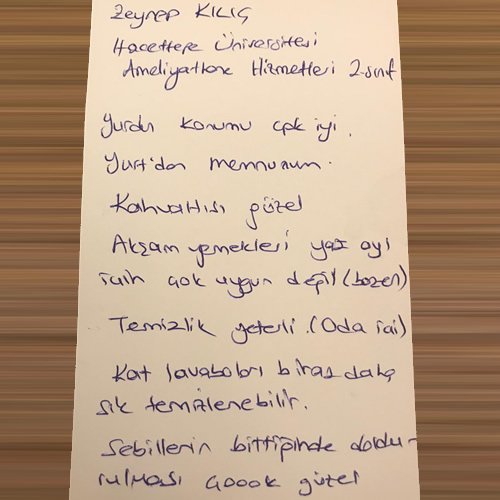 Zeynep KILIÇ
Hacettepe Üniversitesi
Ameliyathane Hizmetleri 2.sınıf
Yurdun konumu çok iyi.
Yurt'dan memnunum.
Kahvaltısı güzel
Akşam yemekleri yaz ayı
için çok uygun değil (bazen)
Temizlik yeterli. (Oda içi)
Kat lavaboları biraz daha
sık temizlenebilir.
Sebillerin bittiğinde doldu-
rulması çooook güzel